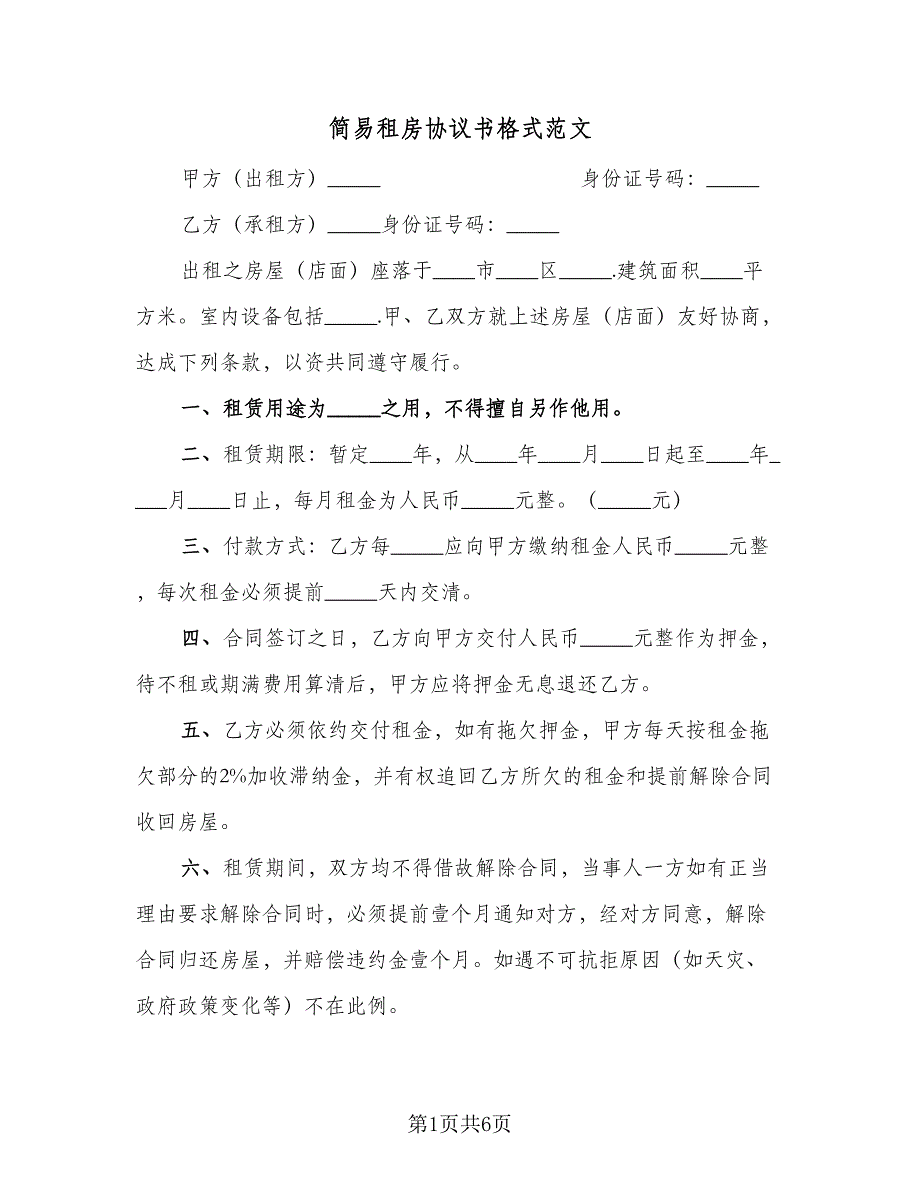 简易租房协议书格式范文
甲方（出租方）_____ 身份证号码：_____
乙方（承租方）_____身份证号码：_____
出租之房屋（店面）座落于____市____区_____.建筑面积____平
方米。室内设备包括_____.甲、乙双方就上述房屋（店面）友好协商，
达成下列条款，以资共同遵守履行。
一、租赁用途为_____之用，不得擅自另作他用。
二、租赁期限：暂定____年，从____年____月____日起至____年_
___月____日止，每月租金为人民币_____元整。（_____元）
三、付款方式：乙方每_____应向甲方缴纳租金人民币_____元整
，每次租金必须提前_____天内交清。
四、合同签订之日，乙方向甲方交付人民币_____元整作为押金，
待不租或期满费用算清后，甲方应将押金无息退还乙方。
五、乙方必须依约交付租金，如有拖欠押金，甲方每天按租金拖
欠部分的2%加收滞纳金，并有权追回乙方所欠的租金和提前解除合同
收回房屋。
六、租赁期间，双方均不得借故解除合同，当事人一方如有正当
理由要求解除合同时，必须提前壹个月通知对方，经对方同意，解除
合同归还房屋，并赔偿违约金壹个月。如遇不可抗拒原因（如天灾、
政府政策变化等）不在此例。
第1页共6页